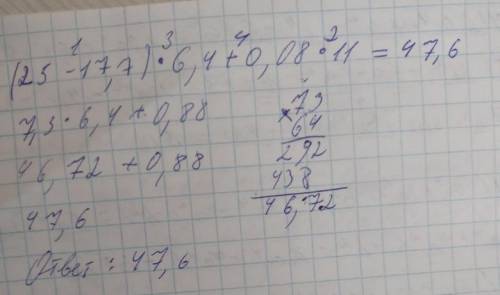 1 3 4 2
(25 - 17,7) · 6,4 + 0,08 · 11 = 47,6
7,3 · 6,4 + 0,88
46,72 + 0,88
47,6
× 73
64
292
438
46,72
Ответ: 47,6